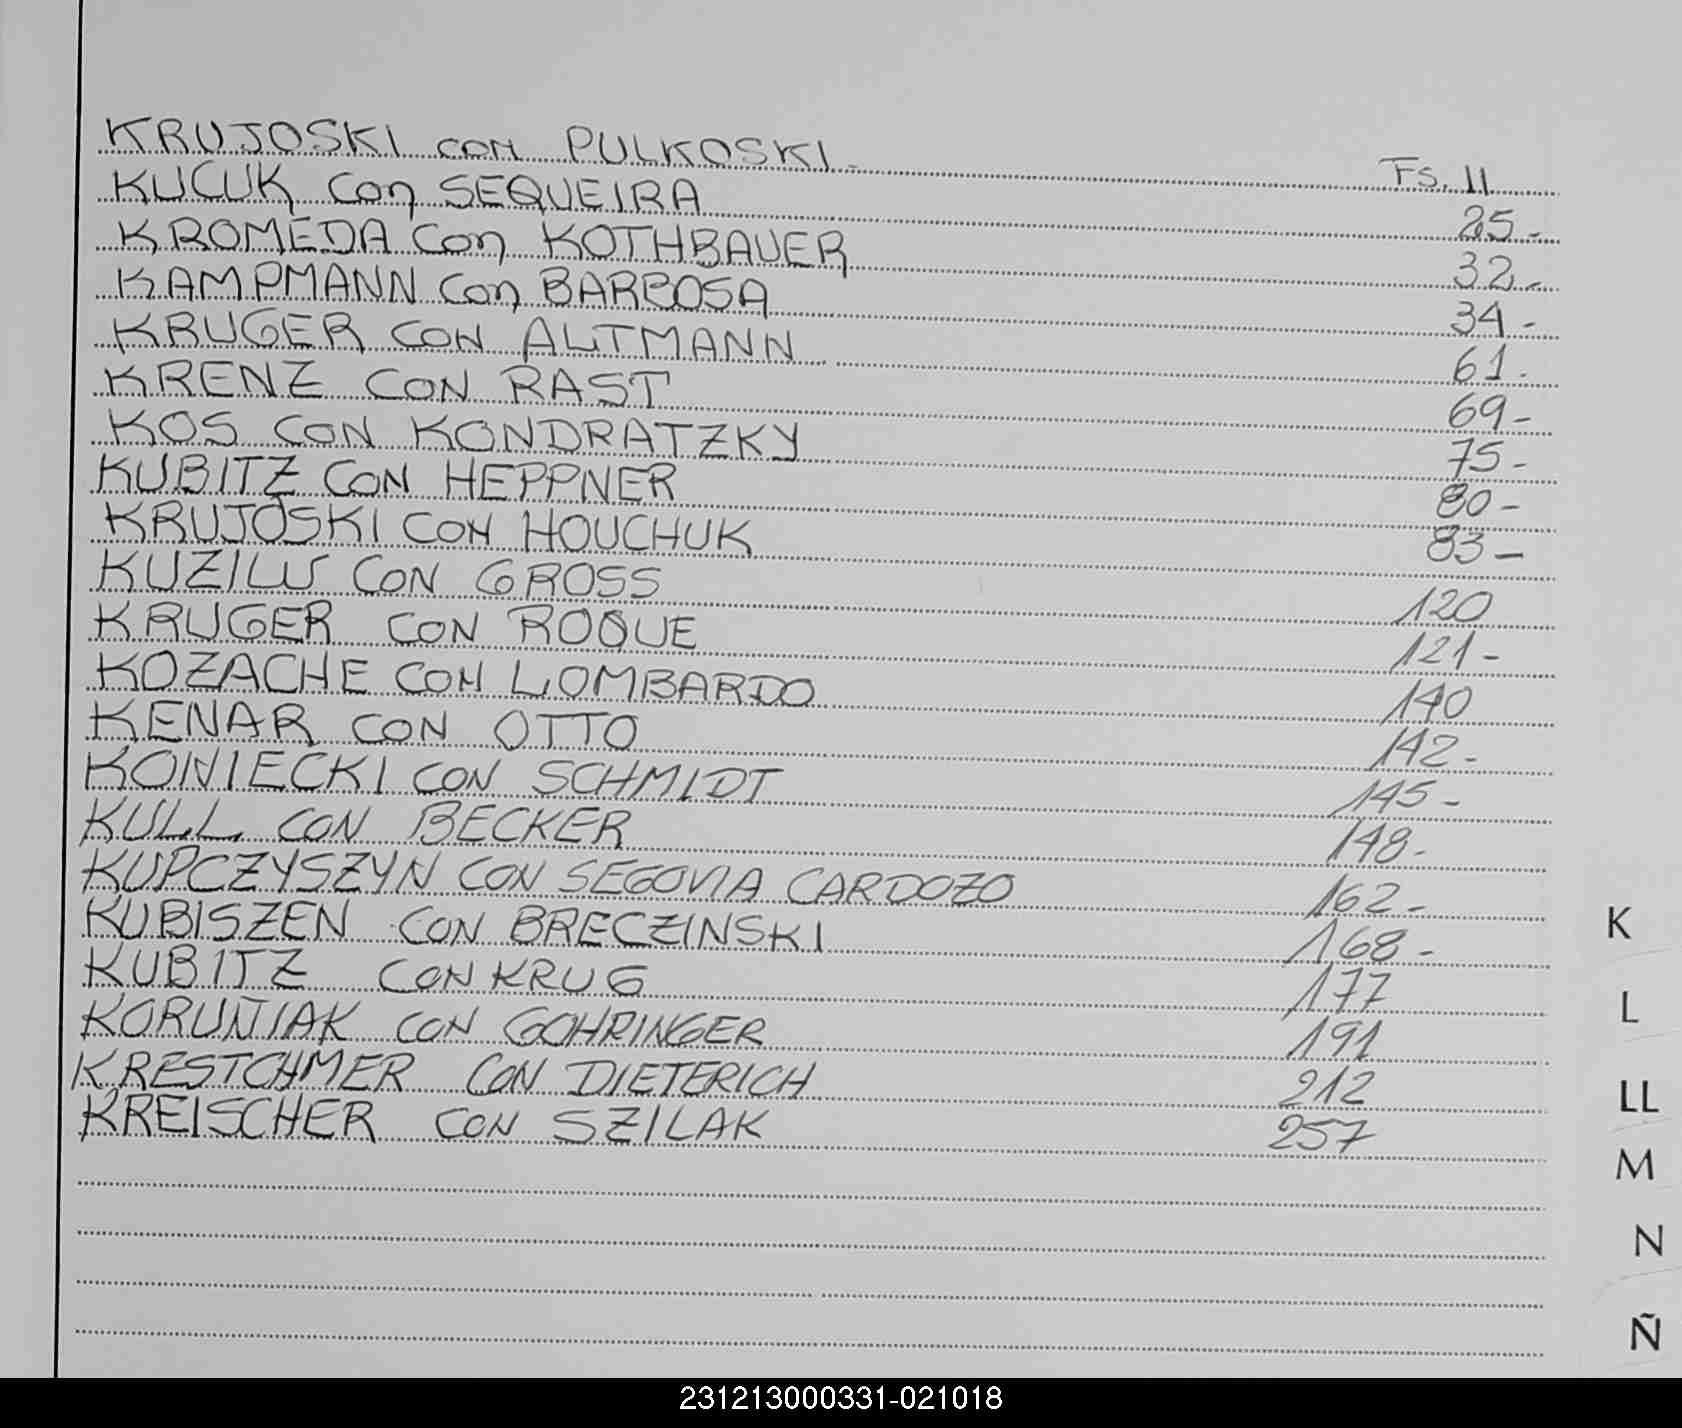 KRUJOSKI con PULKOSKI. Fs. 11
KUCUK con SEQUEIRA 25-
KROMEDA con KOTHBAUER 32-
KAMPMANN con BARBOSA 34-
KRUGER CON ALTMANN 61-
KRENZ CON RAST 69-
KOS CON KONDRATZKY 75-
KUBITZ CON HEPPNER 80-
KRUJOSKI CON HOUCHUK 83-
KUZILW CON GROSS 120
KRUGER CON ROQUE 121-
KOZACHE CON LOMBARDO 140
KENAR CON OTTO 142-
KONIECKI CON SCHMIDT 145-
KULL CON BECKER 148-
KUPCZYSZYN CON SEGOVIA CARDOZO 162-
KUBISZEN CON BRECZINSKI 168-
KUBITZ CON KRUG 177
KORUNIAK CON GOHRINGER 191
KRESTCHMER CON DIETERICH 212
KREISCHER CON SZILAK 257
K
L
LL
M
N
Ñ
231213000331-021018